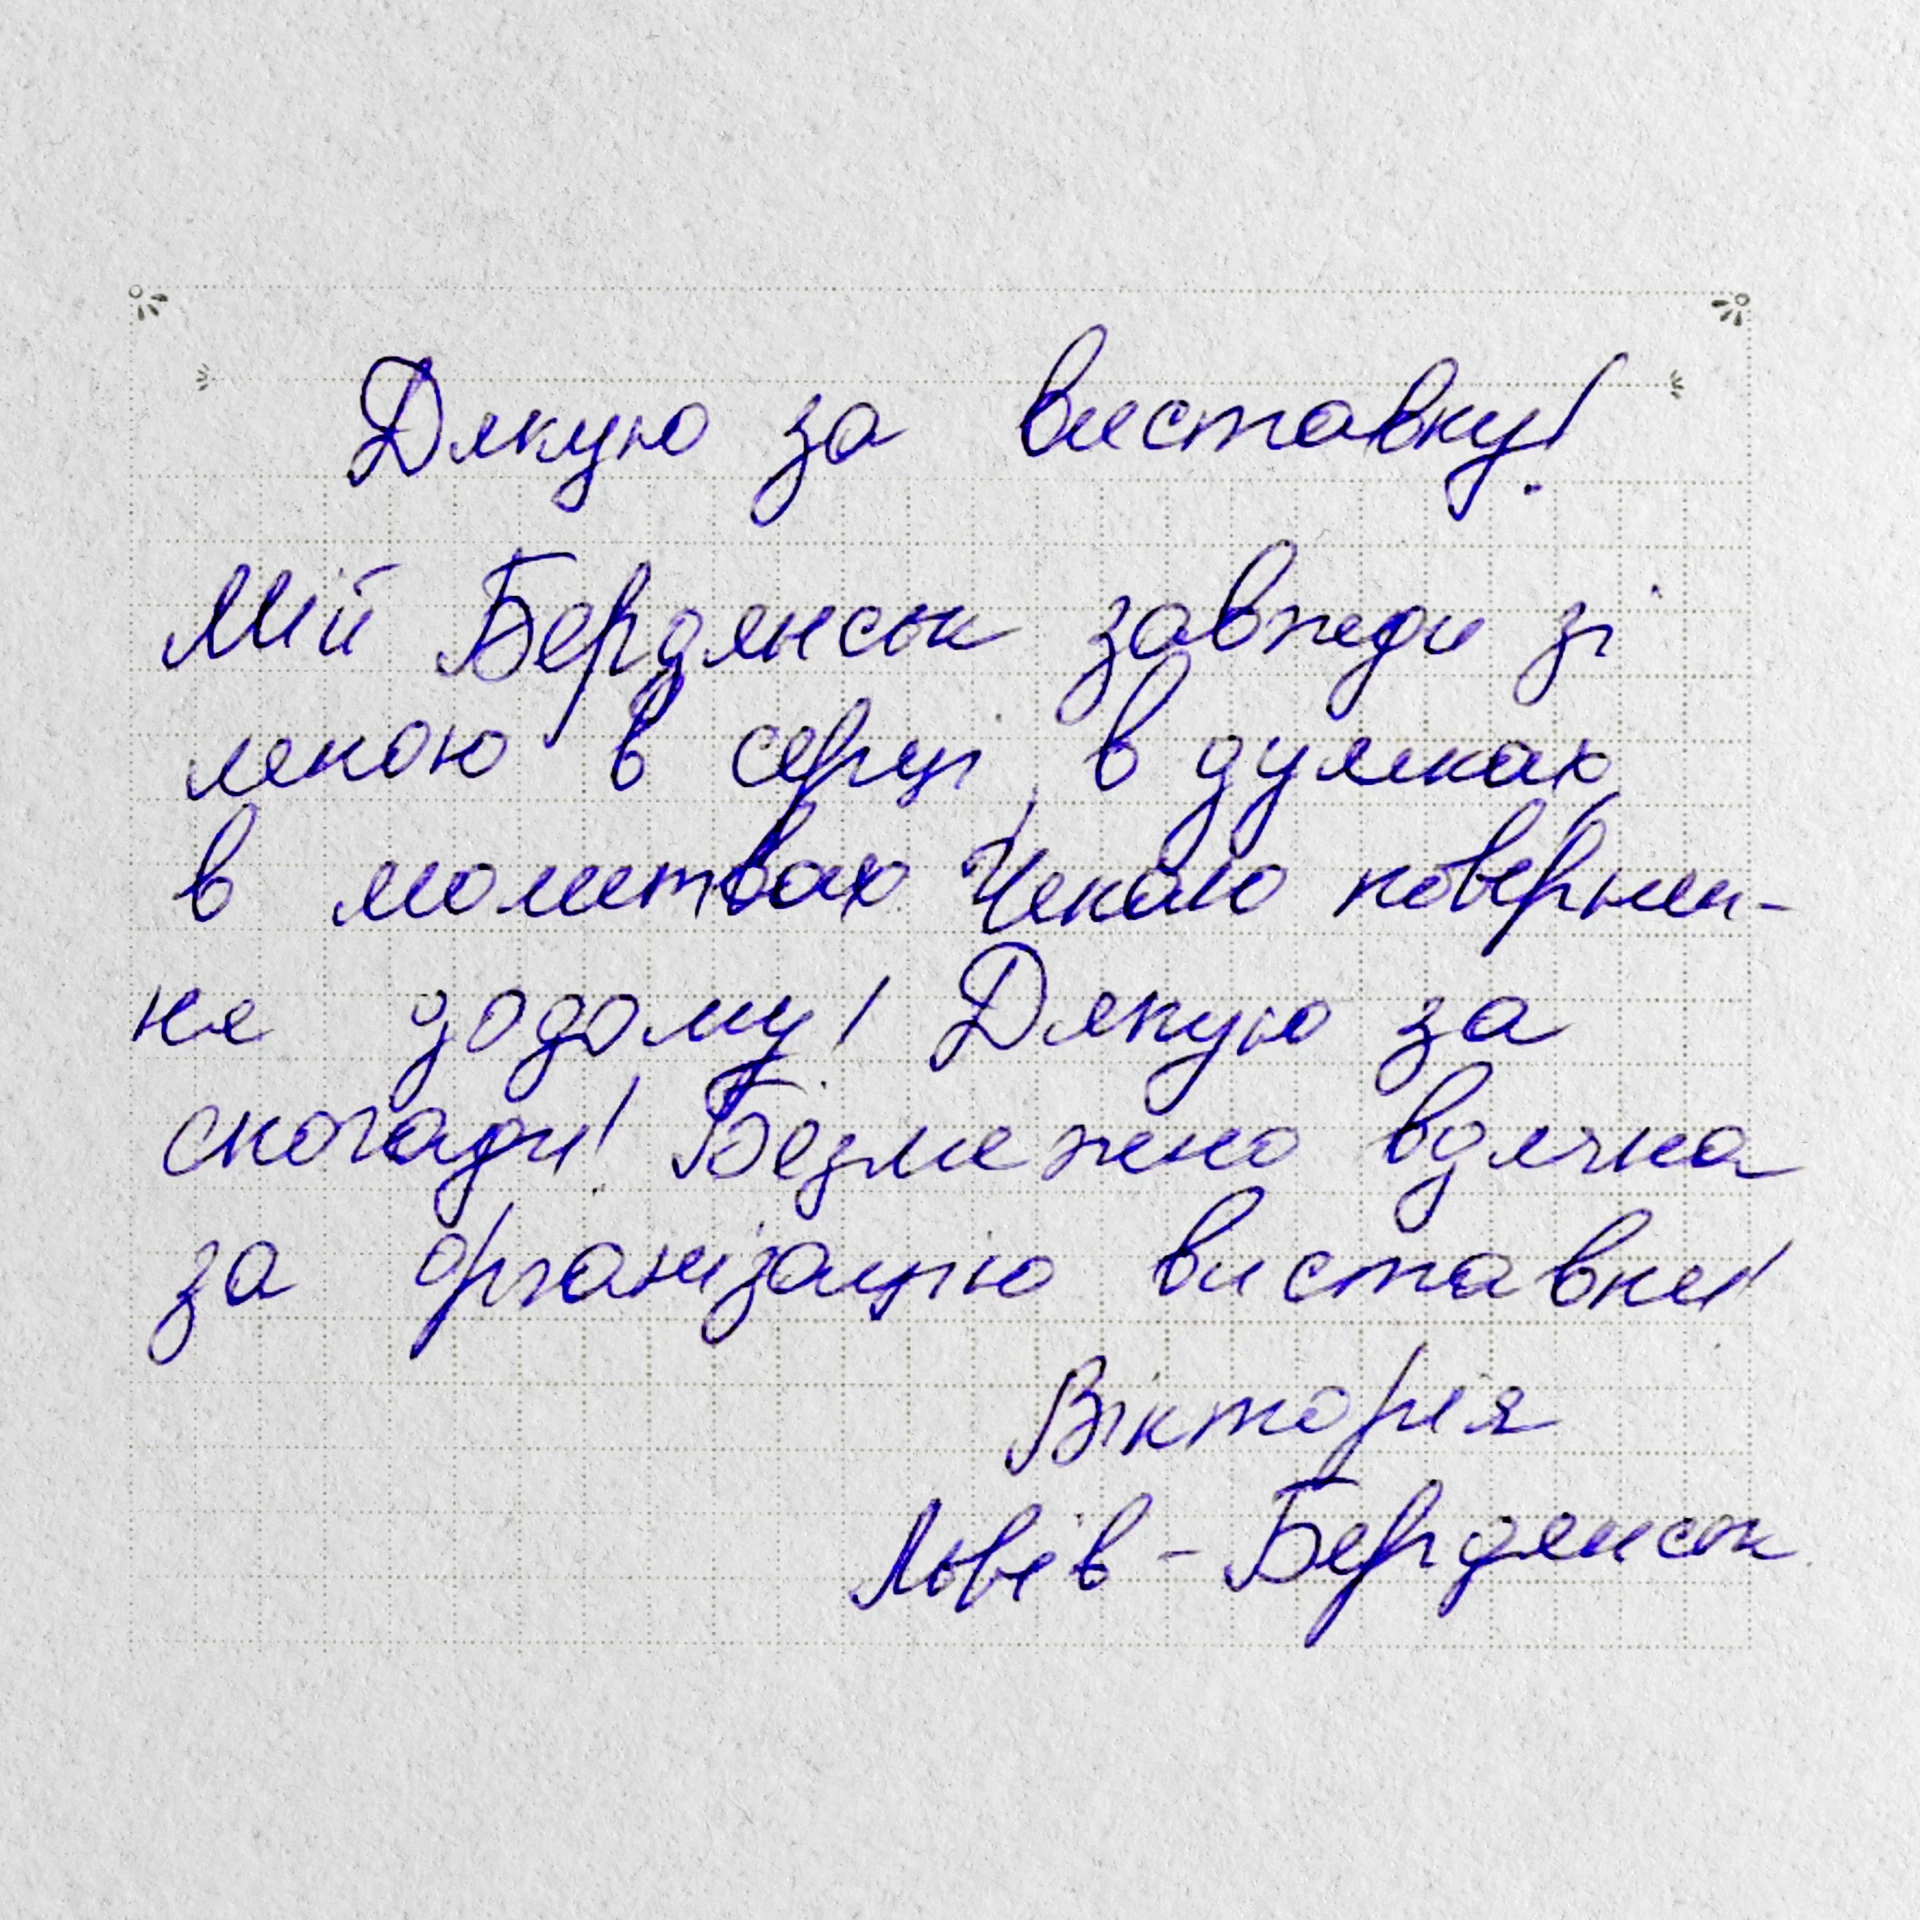 Дякую за виставку!
Мій Бердянськ завжди зі
мною в серці, в думках,
в молитвах Чекаю повернен-
ня додому! Дякую за
спогади! Безмежно вдячна
за організацію виставки!
Вікторія
Львів - Бердянськ